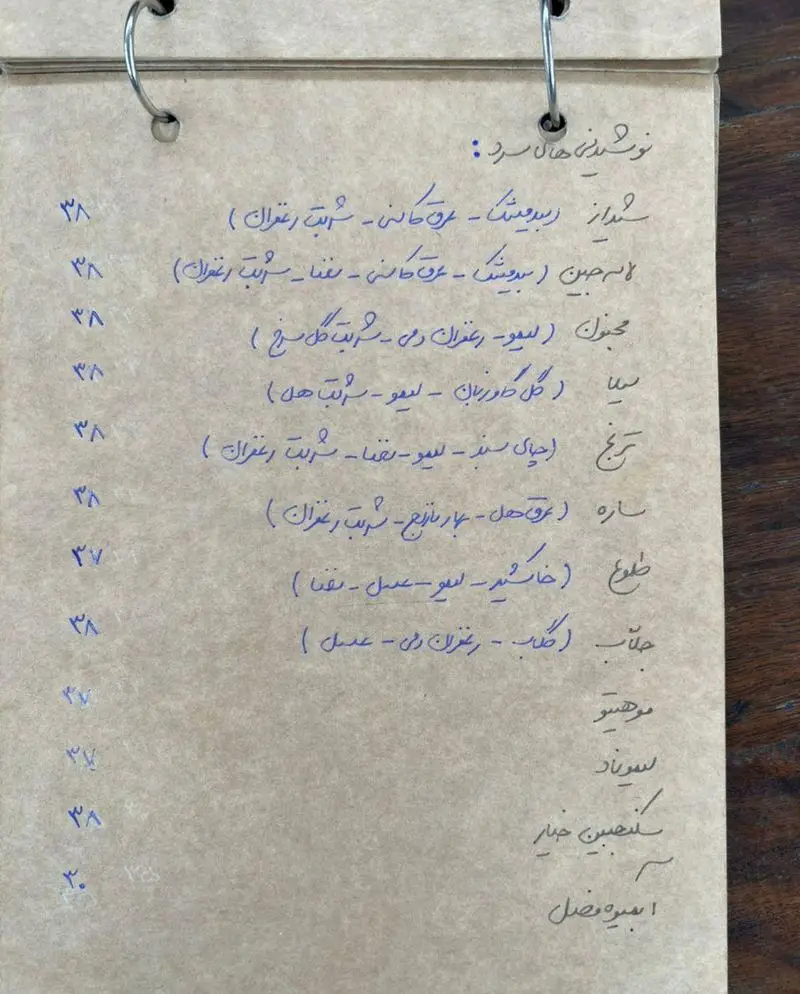 نوشیدنی های سرد :
شیراز (بیدمشک - عرق کاسنی - شربت زعفران) ۳۸
لاله جین (بیدمشک - عرق کاسنی - نعنا - شربت زعفران) ۳۸
مجنون (لیمو - زعفران دمی - شربت گل سرخ) ۳۸
(گل گاوزبان - لیمو - شربت هل) ۳۸
ترنج (چای سبز - لیمو - نعنا - شربت زعفران) ۳۸
ساره (عرق هل - بهار نارنج - شربت زعفران) ۳۸
طلوع (خاکشیر - لیمو - عسل - نعنا) ۳۷
جلّاب (گلاب - زعفران دمی - عسل) ۳۸
موهیتو ۳۷
لیموناد ۳۷
سکنجبین خیار ۳۸
آبمیوه فصل ۳۰